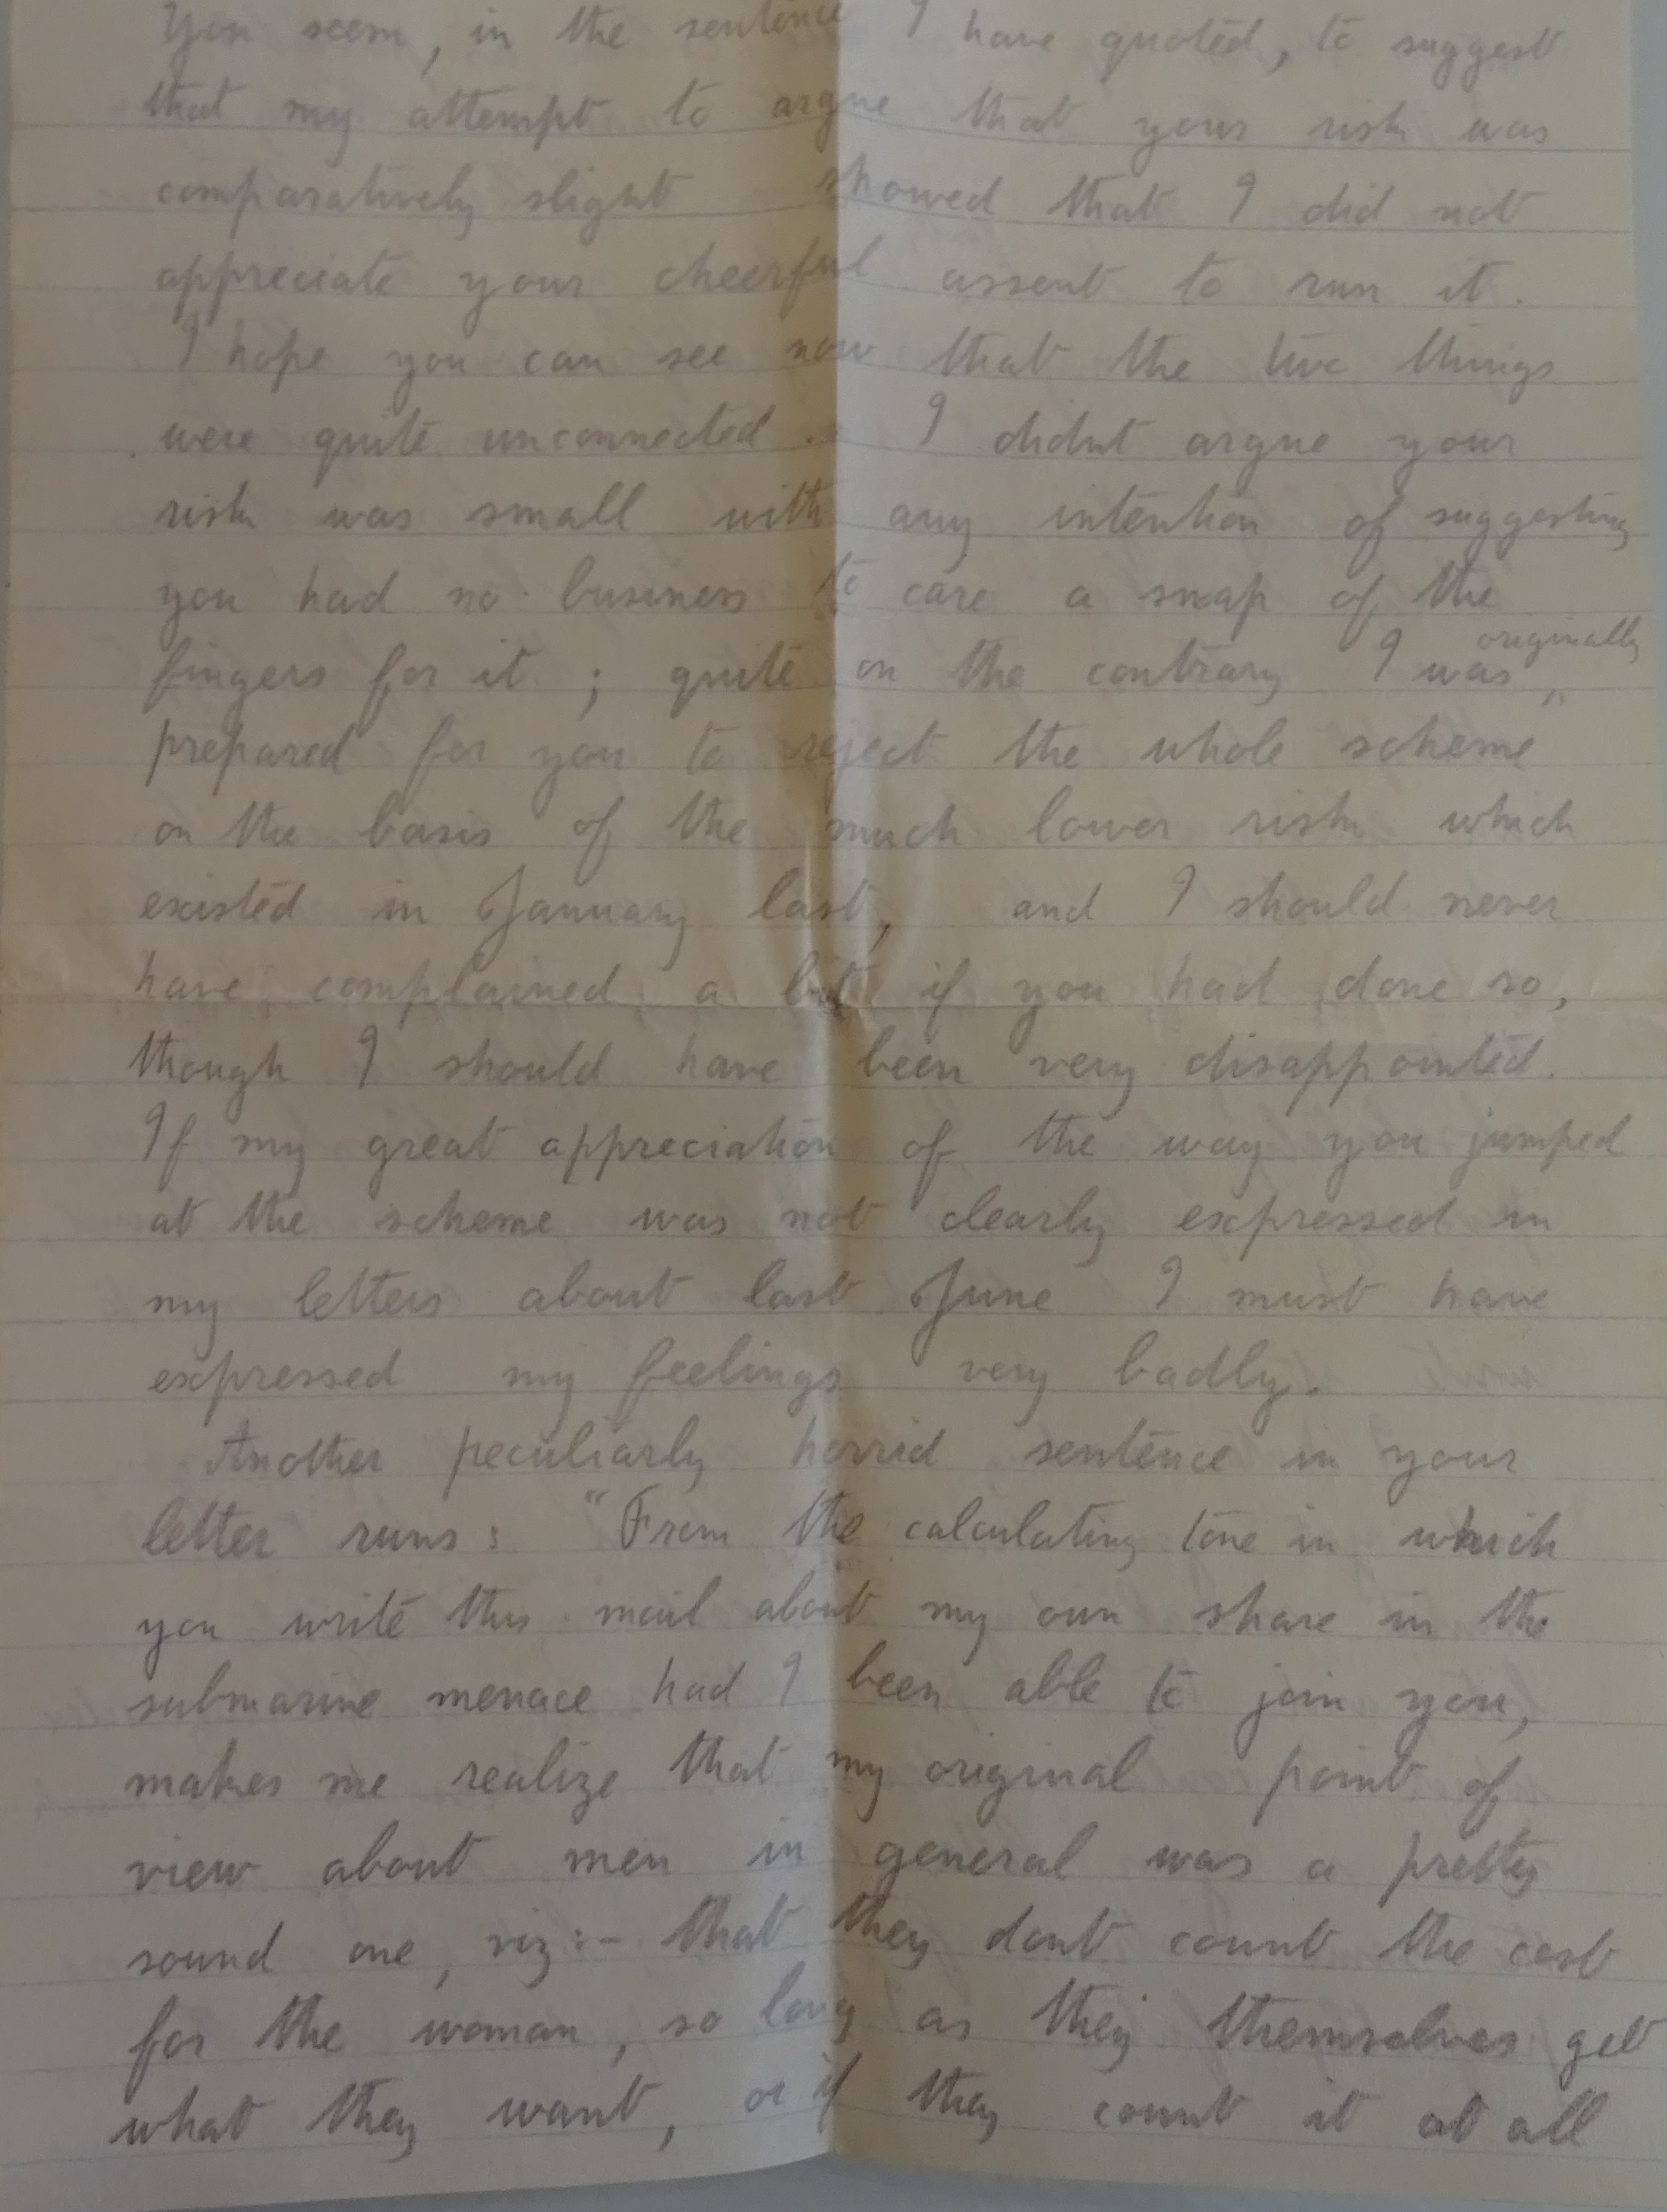 You seem, in the sentence I have quoted, to suggest
that my attempt to argue that your risk was
comparatively slight showed that I did not
appreciate your cheerful assent to run it.
I hope you can see now that the two things
were quite unconnected. I didnt argue your
risk was small with any intention of suggesting
you had no business to care a snap of the
fingers for it ; quite on the contrary I was originally
prepared for you to reject the whole scheme
on the basis of the much lower risk which
existed in January last, and I should never
have complained a bit if you had done so,
though I should have been very disappointed.
If my great appreciation of the way you jumped
at the scheme was not clearly expressed in
my letters about last June I must have
expressed my feelings very badly.
Another peculiarly horrid sentence in your
letter runs : "From the calculating tone in which
you write this mail about my own share in the
submarine menace had I been able to join you,
makes me realize that my original point of
view about men in general was a pretty
sound one, viz:- that they dont count the cost
for the woman, so long as they themselves get
what they want, or if they count it at all